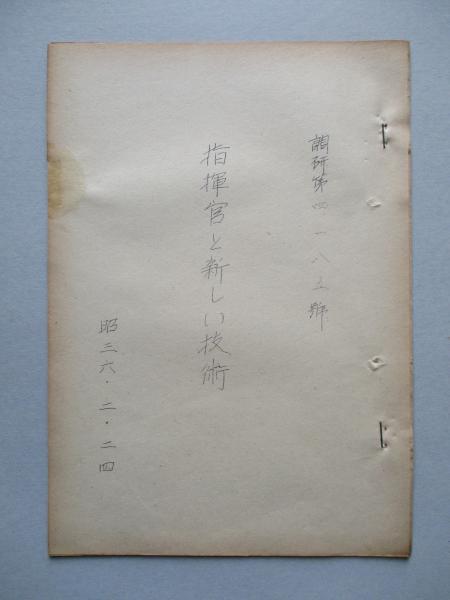 調研第四一八五號
指揮官と新しい技術
昭三六・二・二四